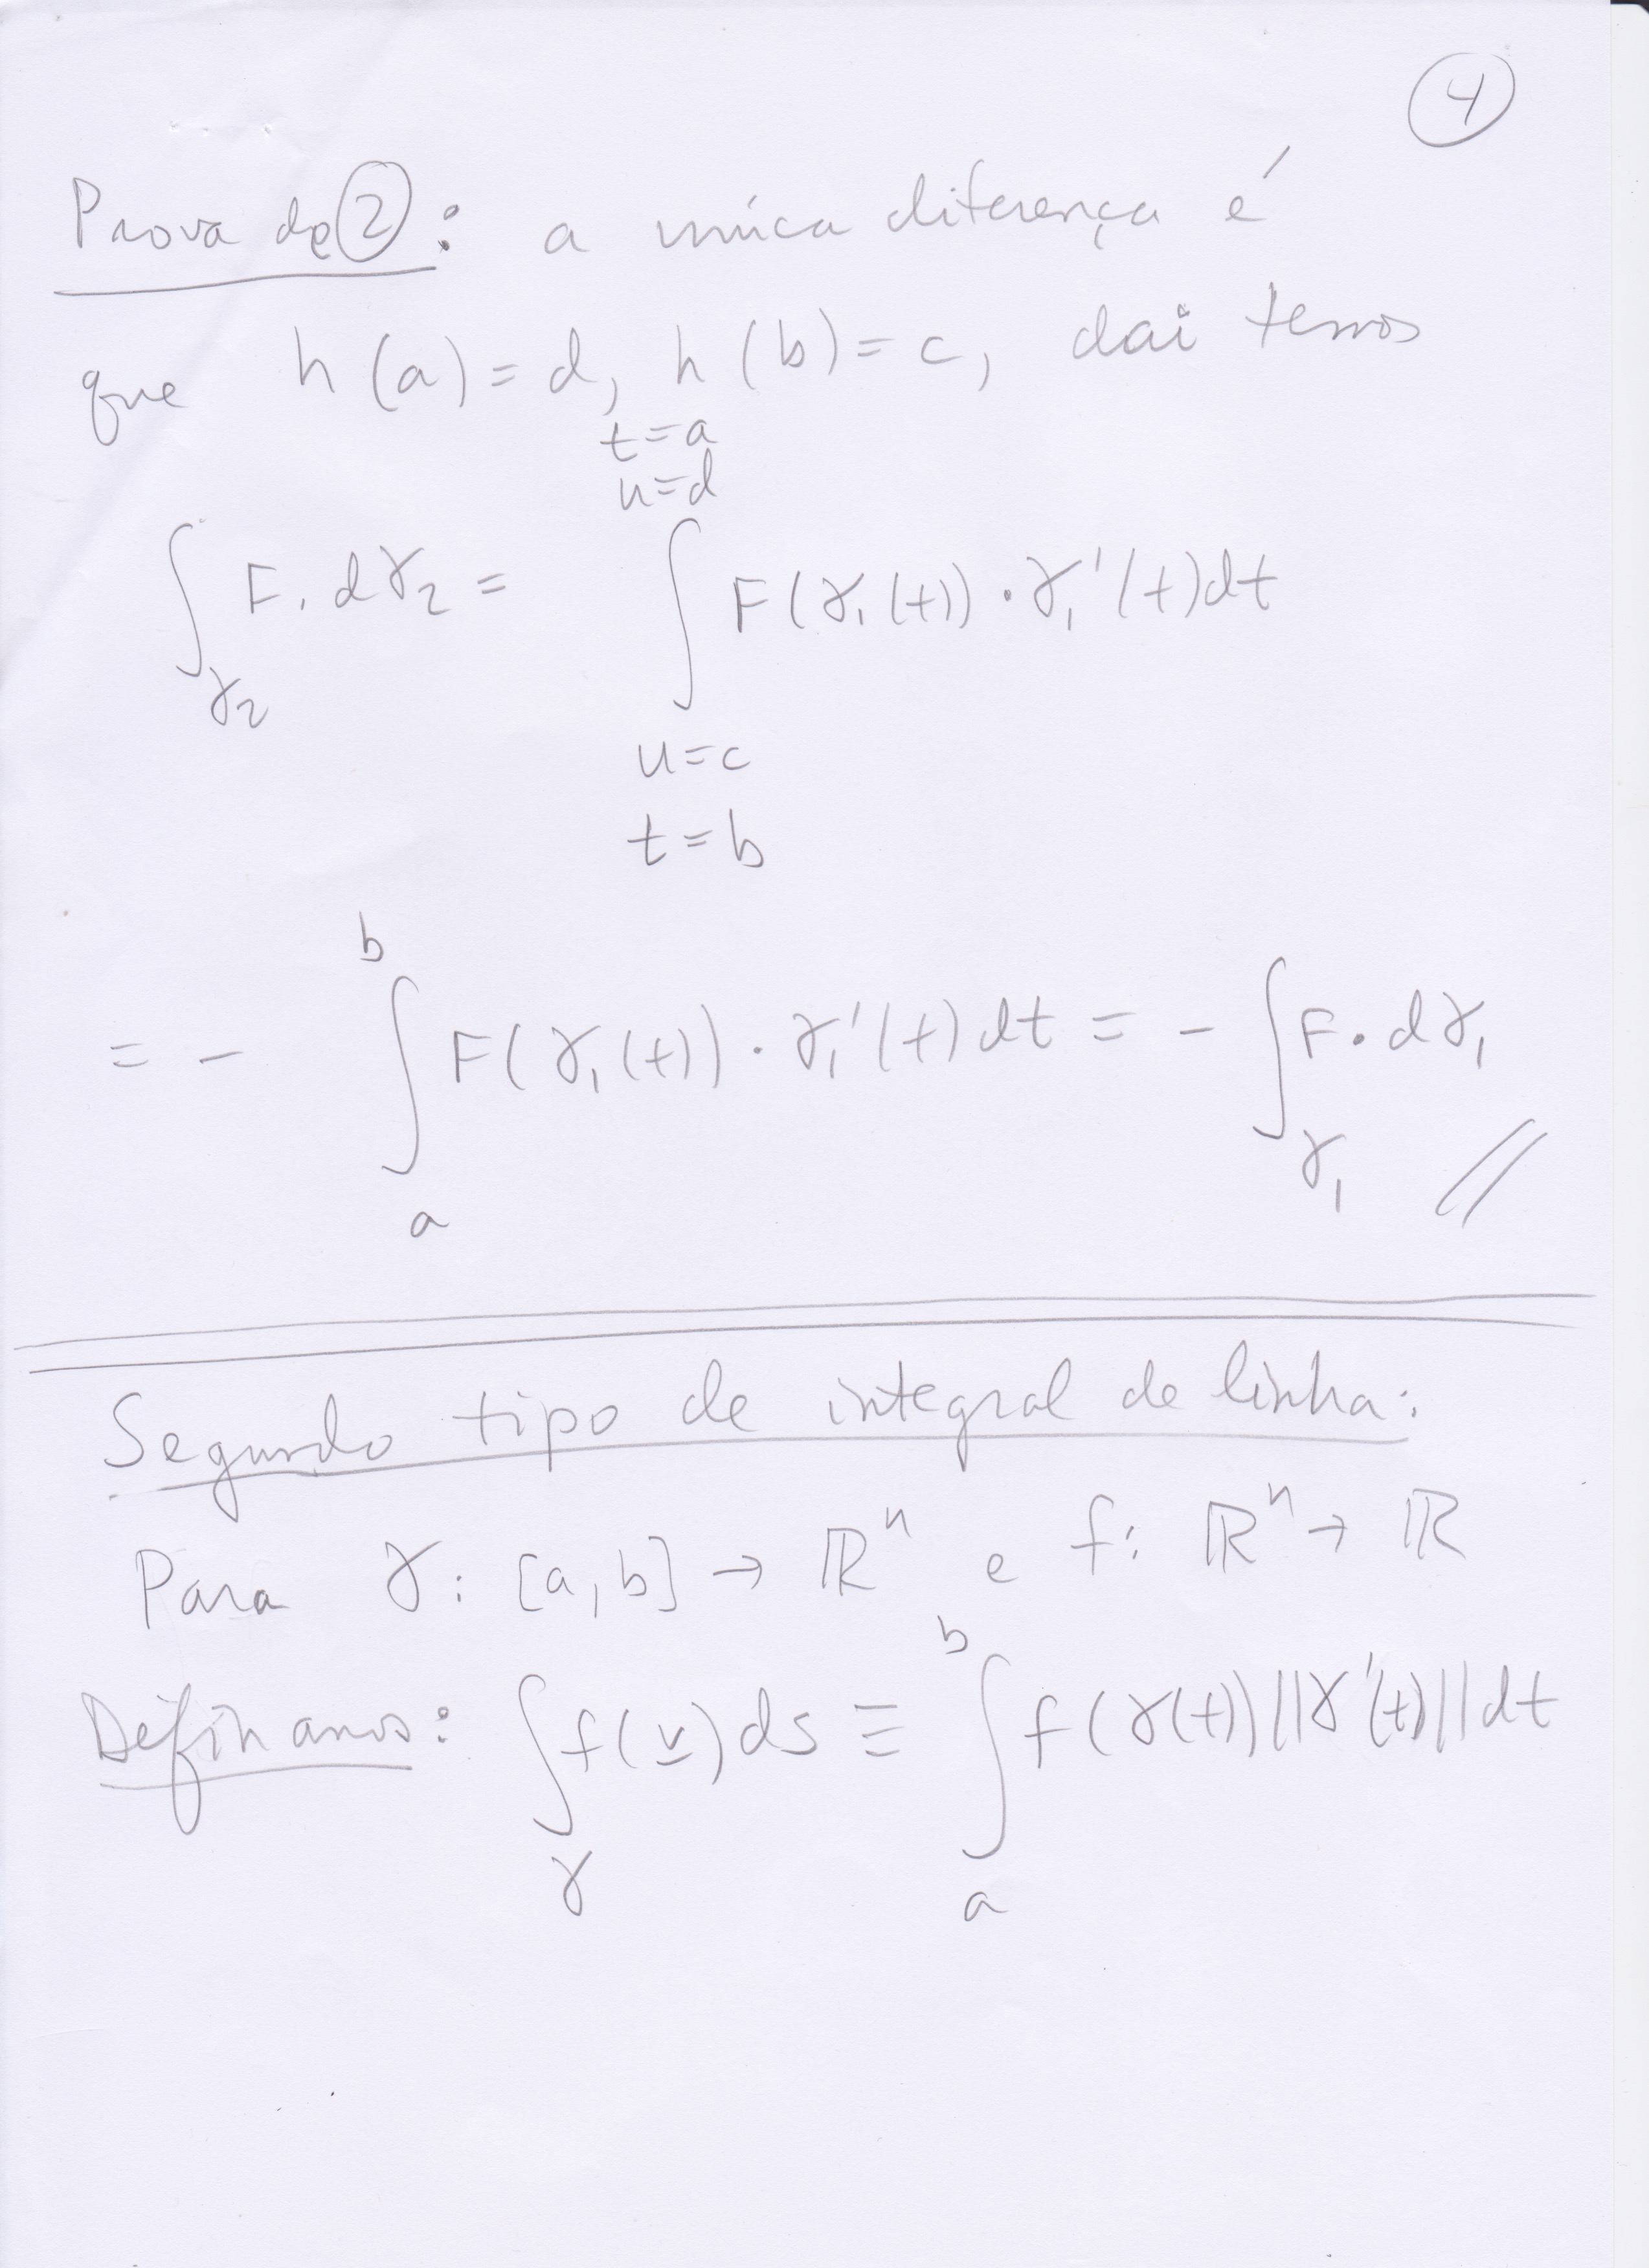 4
Prova de 2: a única diferença é
que h(a)=d, h(b)=c, dai temos
t=a
u=d
∫ F. dγ₂ = ∫ F(γ₁(t))·γ₁'(t)dt
γ₂
u=c
t=b
b
= - ∫ F(γ₁(t))·γ₁'(t)dt = - ∫ F·dγ₁
a γ₁ //
Segundo tipo de integral de linha:
Para γ: [a,b] → ℝⁿ e f: ℝⁿ → ℝ
b
Definamos: ∫ f(v̲)ds ≡ ∫ f(γ(t))||γ'(t)||dt
γ a